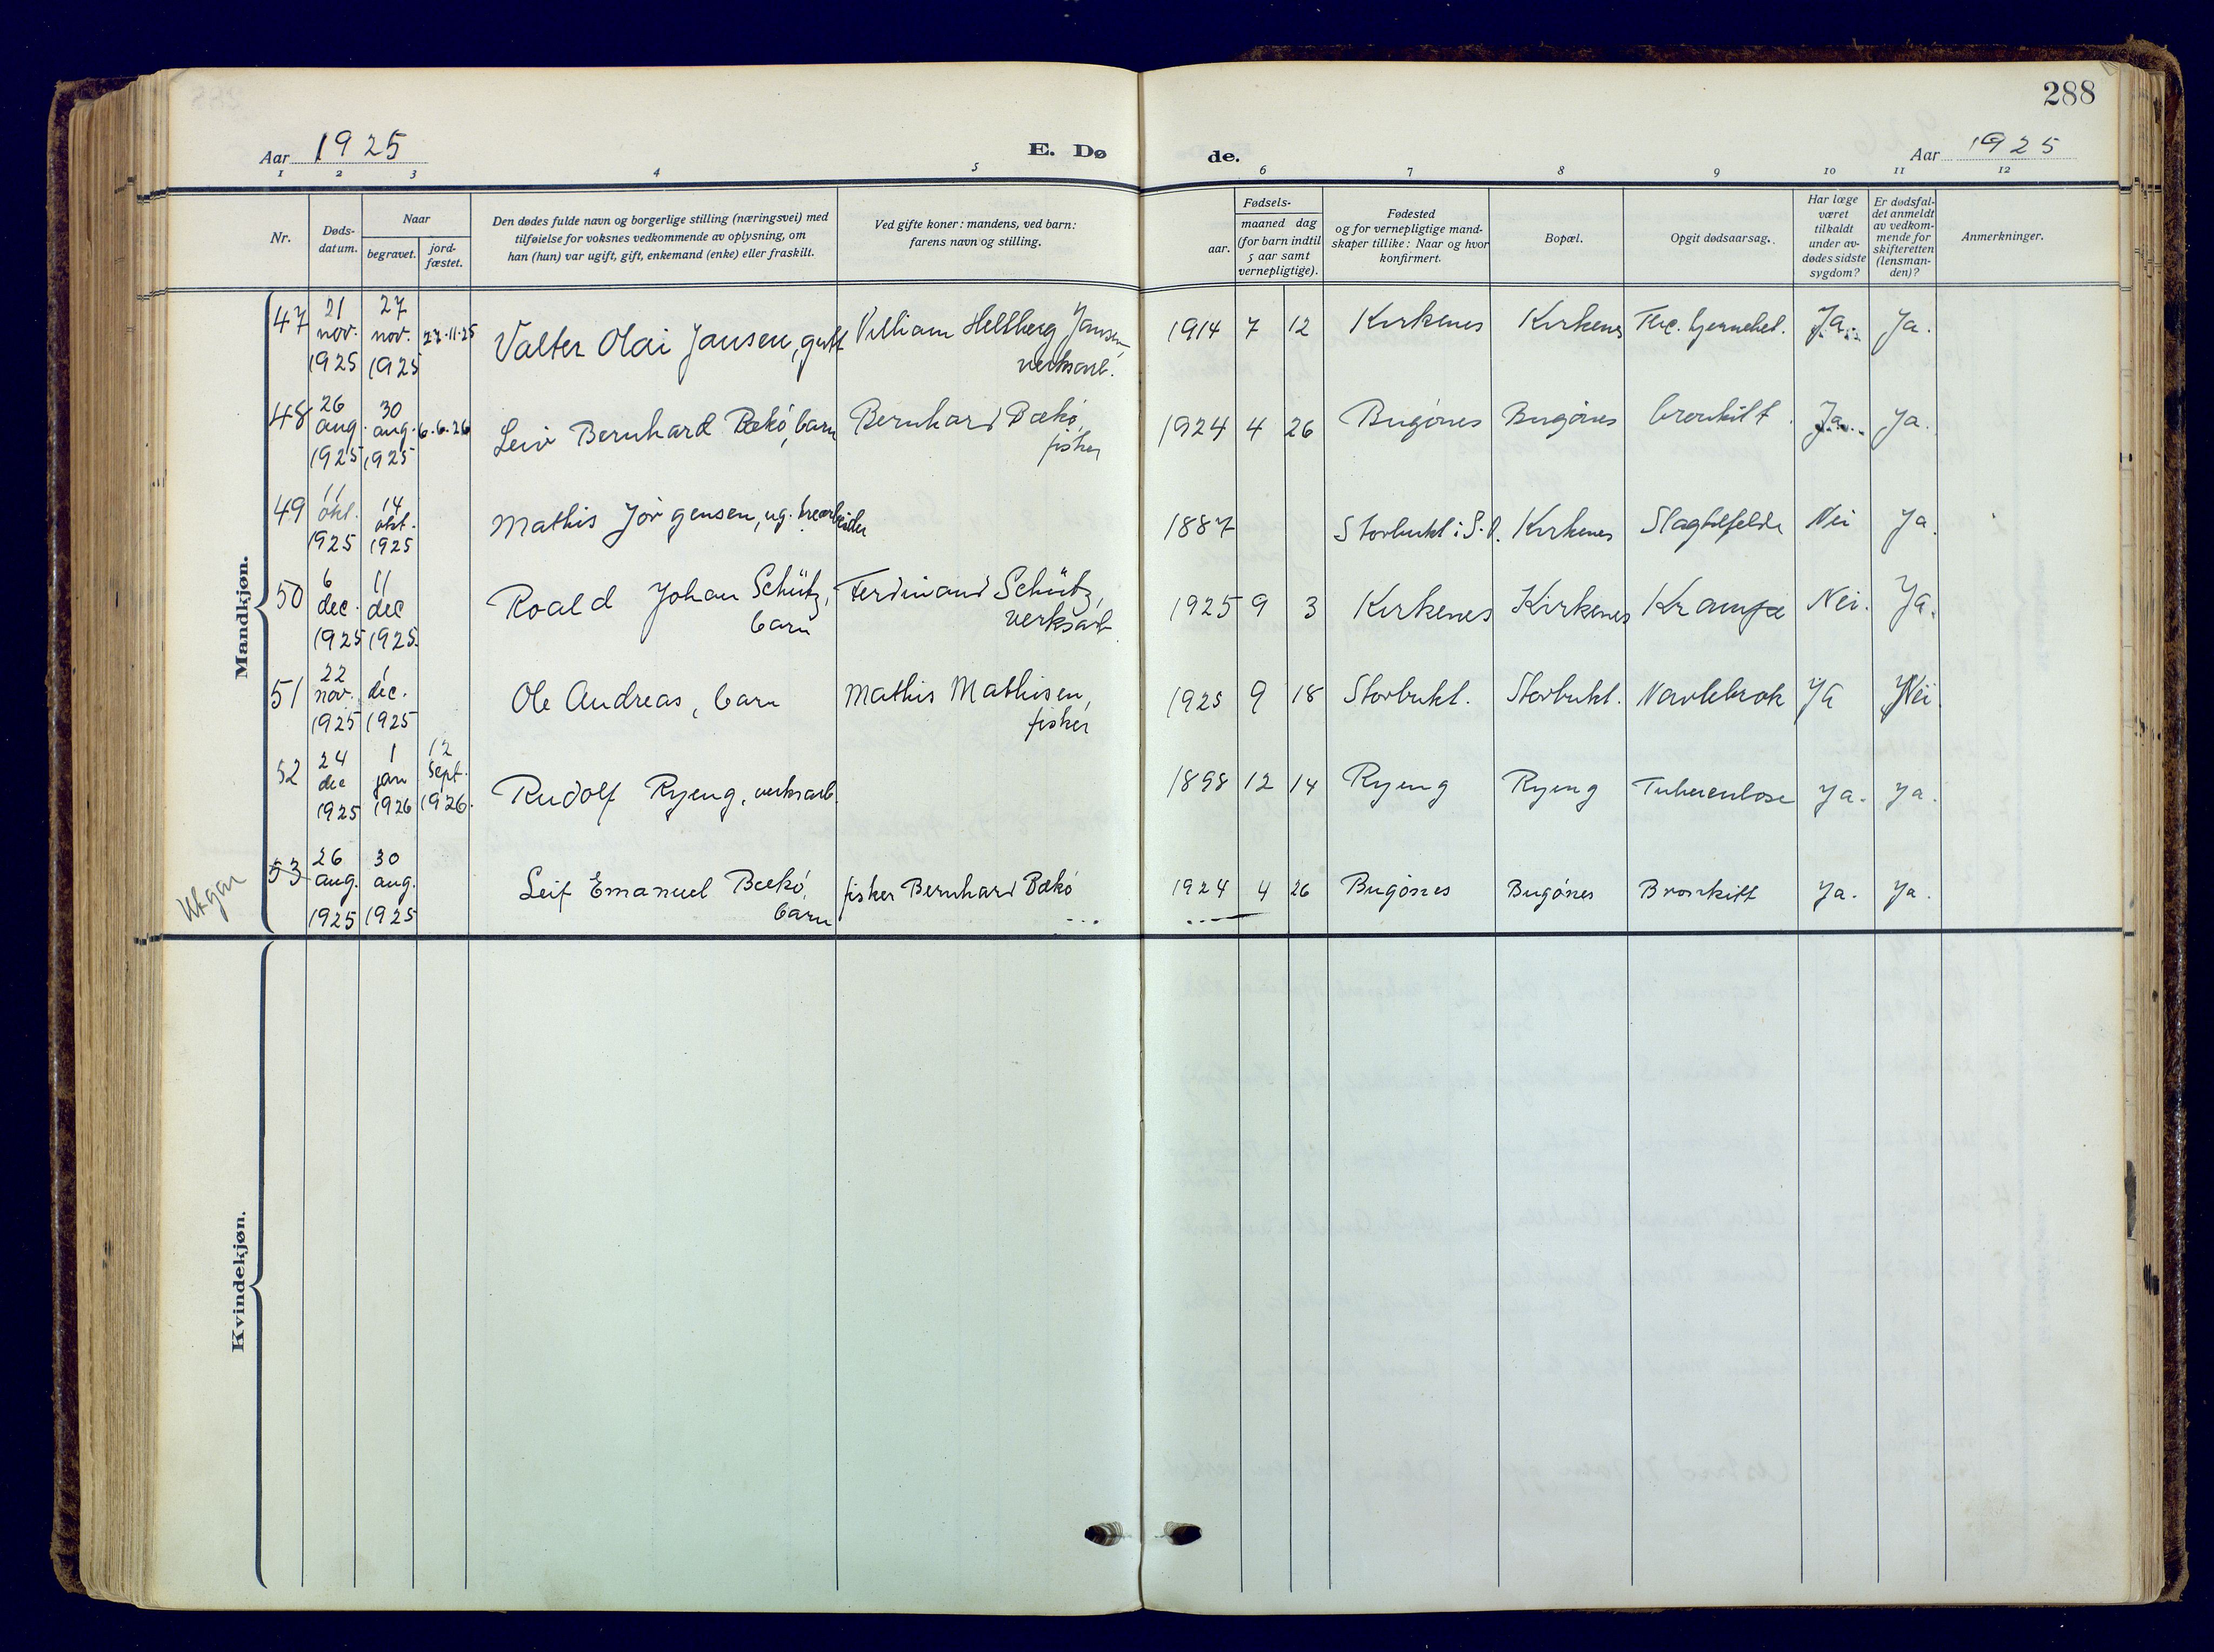 288
Aar 1925
E. Dø
de.
Aar 1925
1 2 3 4 5 6 7 8 9 10 11 12
Nr.
Døds-
datum.
Naar
begravet.
jord-
fæstet.
Den dødes fulde navn og borgerlige stilling (næringsvei) med
tilføielse for voksnes vedkommende av oplysning, om
han (hun) var ugift, gift, enkemand (enke) eller fraskilt.
Ved gifte koner: mandens, ved barn:
farens navn og stilling.
Fødsels-
aar.
maaned dag
(for barn indtil
5 aar samt
vernepligtige).
Fødested
og for vernepligtige mand-
skaper tillike: Naar og hvor
konfirmert.
Bopæl.
Opgit dødsaarsag.
Har læge
været
tilkaldt
under av-
dødes sidste
sygdom?
Er dødsfal-
det anmeldt
av vedkom-
mende for
skifteretten
(lensman-
den)?
Anmerkninger.
Mandkjøn.
47 21 nov. 1925 27 nov. 1925 27.11.25 Valter Olai Jansen, gutt Villiam Hellberg Jansen, verksarb. 1914 7 12 Kirkenes Kirkenes Ja. Ja.
48 26 aug. 1925 30 aug. 1925 6.6.26 Leiv Bernhard Bækö, barn Bernhard Bækö, fisker 1924 4 26 Bugönes Bugönes bronkitt. Ja. Ja.
49 11 okt. 1925 14 okt. 1925 Mathis Jörgensen, ug. 1887 Storbukt i S.V. Kirkenes Slagtilfelde Nei Ja.
50 6 dec. 1925 11 dec 1925 Roald Johan Schütz, barn Ferdinand Schütz, verksarb. 1925 9 3 Kirkenes Kirkenes Krampe Nei. Ja.
51 22 nov. 1925 1 dec. 1925 Ole Andreas, barn Mathis Mathisen, fisker 1925 9 18 Storbukt. Storbukt. Navlebrok Ja Nei.
52 24 dec 1925 1 jan 1926 12 Sept. 1926. Rudolf Ryeng, verksarb. 1898 12 14 Ryeng Ryeng Tuberculose Ja. Ja.
Utgår 53 26 aug. 1925 30 aug. 1925 Leif Emanuel Bækö, barn fisker Bernhard Bækö 1924 4 26 Bugönes Bugönes Bronkitt Ja. Ja.
Kvindekjøn.